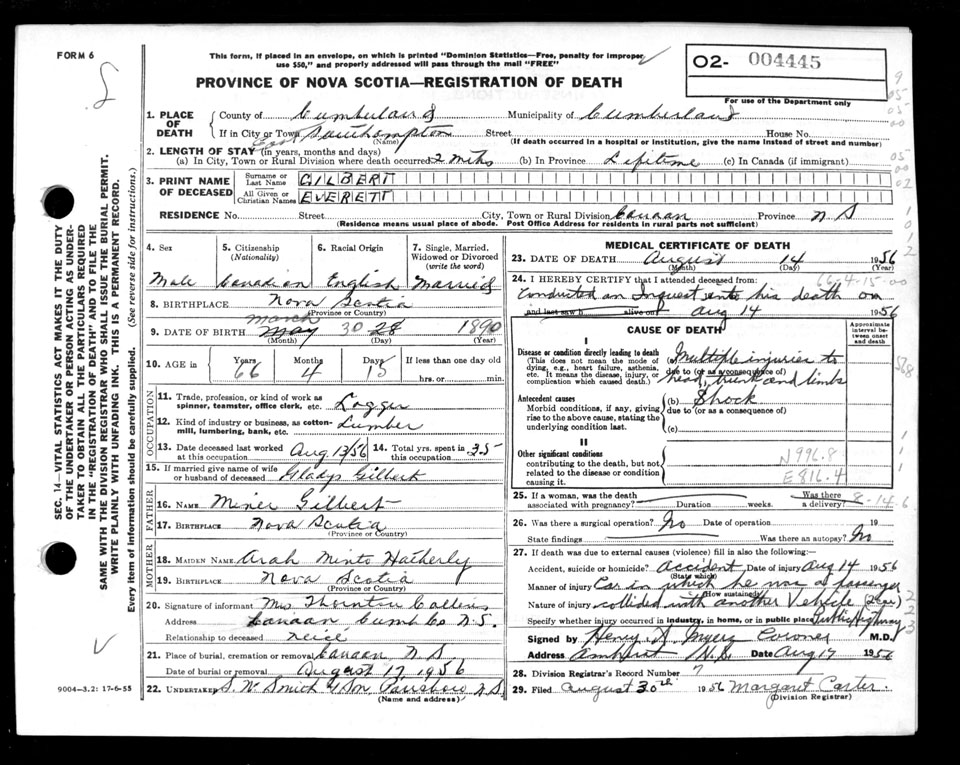 FORM 6
This form, if placed in an envelope, on which is printed "Dominion Statistics—Free, penalty for improper
use $50," and properly addressed will pass through the mail "FREE"
PROVINCE OF NOVA SCOTIA—REGISTRATION OF DEATH
02- 004445
For use of the Department only
1. PLACE OF DEATH
County of Cumberland Municipality of Cumberland
If in City or Town East Southampton Street House No.
(Name) (If death occurred in a hospital or institution, give the name instead of street and number)
2. LENGTH OF STAY (in years, months and days)
(a) In City, Town or Rural Division where death occurred 2 mths (b) In Province Lifetime (c) In Canada (if immigrant)
3. PRINT NAME OF DECEASED
Surname or Last Name GILBERT
All Given or Christian Names EVERETT
RESIDENCE No. Street City, Town or Rural Division Canaan Province N S
(Residence means usual place of abode. Post Office Address for residents in rural parts not sufficient)
4. Sex 5. Citizenship (Nationality) 6. Racial Origin 7. Single, Married, Widowed or Divorced (write the word)
Male Canadian English Married
8. BIRTHPLACE Nova Scotia
(Province or Country)
March
9. DATE OF BIRTH May 30 28 1890
(Month) (Day) (Year)
10. AGE in Years Months Days If less than one day old
66 4 15 hrs. or min.
OCCUPATION
11. Trade, profession, or kind of work as spinner, teamster, office clerk, etc. Logger
12. Kind of industry or business, as cotton-mill, lumbering, bank, etc. Lumber
13. Date deceased last worked at this occupation Aug 13/56 14. Total yrs. spent in this occupation 35
15. If married give name of wife or husband of deceased Gladys Gilbert
FATHER
16. NAME Miner Gilbert
17. BIRTHPLACE Nova Scotia
(Province or Country)
MOTHER
18. MAIDEN NAME Arah Minto Hatherly
19. BIRTHPLACE Nova Scotia
(Province or Country)
20. Signature of informant Mrs Thornton
Address Canaan Cumb Co N.S.
Relationship to deceased neice
21. Place of burial, cremation or removal Canaan N S
Date of burial or removal August 17, 1956
22. UNDERTAKER S. W. Smith & Son Parrsboro N S
(Name and address)
MEDICAL CERTIFICATE OF DEATH
23. DATE OF DEATH August 14 1956
(Month) (Day) (Year)
24. I HEREBY CERTIFY that I attended deceased from:
Conducted an Inquest into his death on
and last saw h alive on Aug 14 1956
CAUSE OF DEATH
Approximate interval between onset and death
I
Disease or condition directly leading to death
(This does not mean the mode of dying, e.g., heart failure, asthenia, etc. It means the disease, injury, or complication which caused death.)
(a) Multiple injuries to
due to (or as a consequence of)
head, trunk and limbs
Antecedent causes
Morbid conditions, if any, giving rise to the above cause, stating the underlying condition last.
(b) Shock
due to (or as a consequence of)
(c)
II
Other significant conditions
contributing to the death, but not related to the disease or condition causing it.
N996.8
E816.4
25. If a woman, was the death associated with pregnancy? Duration weeks. Was there a delivery? 8-14-6
26. Was there a surgical operation? No Date of operation 19
State findings Was there an autopsy? No
27. If death was due to external causes (violence) fill in also the following:
Accident, suicide or homicide? Accident Date of injury Aug 14 1956
(State which)
Manner of injury Car in which he was a passenger
(How sustained)
Nature of injury collided with another Vehicle
Specify whether injury occurred in industry, in home, or in public place Public Highway
Signed by Henry A Myers Coroner M.D.
Address Amherst N.S. Date Aug 17 1956
28. Division Registrar's Record Number 7
29. Filed August 30th 1956 Margaret Carter
(Division Registrar)
SEC. 14—VITAL STATISTICS ACT MAKES IT THE DUTY
OF THE UNDERTAKER OR PERSON ACTING AS UNDER-
TAKER TO OBTAIN ALL THE PARTICULARS REQUIRED
IN THE "REGISTRATION OF DEATH" AND TO FILE THE
SAME WITH THE DIVISION REGISTRAR WHO SHALL ISSUE THE BURIAL PERMIT.
WRITE PLAINLY WITH UNFADING INK. THIS IS A PERMANENT RECORD.
Every item of information should be carefully supplied. (See reverse side for instructions.)
9004-3.2: 17-6-55